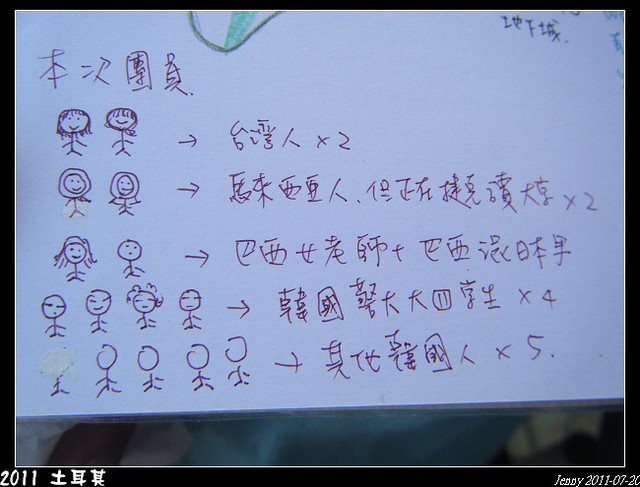 地下城.
本次團員
→ 台灣人 x2
→ 馬來西亞人、但正在捷克讀大学 x2
→ 巴西女老師 + 巴西混日本男
→ 韓國警大大四学生 x4
→ 其他韓國人 x 5.
2011 土耳其
Jenny 2011-07-20